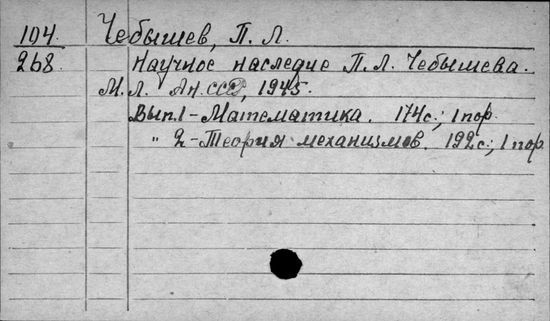 104. Чебышев, П. Л.
268. Научное наследие П. Л. Чебышева.
М. Л. Ан. СССР, 1945.
Вып. 1 - Математика. 174 с.; 1 пор.
" 2 - Теория механизмов. 192 с.; 1 пор